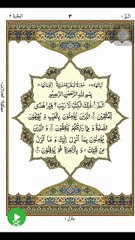 ٣
سُورَةُ الْبَقَرَةِ
بِسْمِ اللهِ الرَّحْمٰنِ الرَّحِيْمِ
الٓمّٓ ذٰلِكَ الْكِتٰبُ لَا رَيْبَ فِيْهِ هُدًى
لِّلْمُتَّقِيْنَ الَّذِيْنَ يُؤْمِنُوْنَ بِالْغَيْبِ وَيُقِيْمُوْنَ
الصَّلٰوةَ وَمِمَّا رَزَقْنٰهُمْ يُنْفِقُوْنَ وَالَّذِيْنَ
يُؤْمِنُوْنَ بِمَا اُنْزِلَ اِلَيْكَ وَمَا اُنْزِلَ
مِنْ قَبْلِكَ وَبِالْاٰخِرَةِ هُمْ يُوْقِنُوْنَ